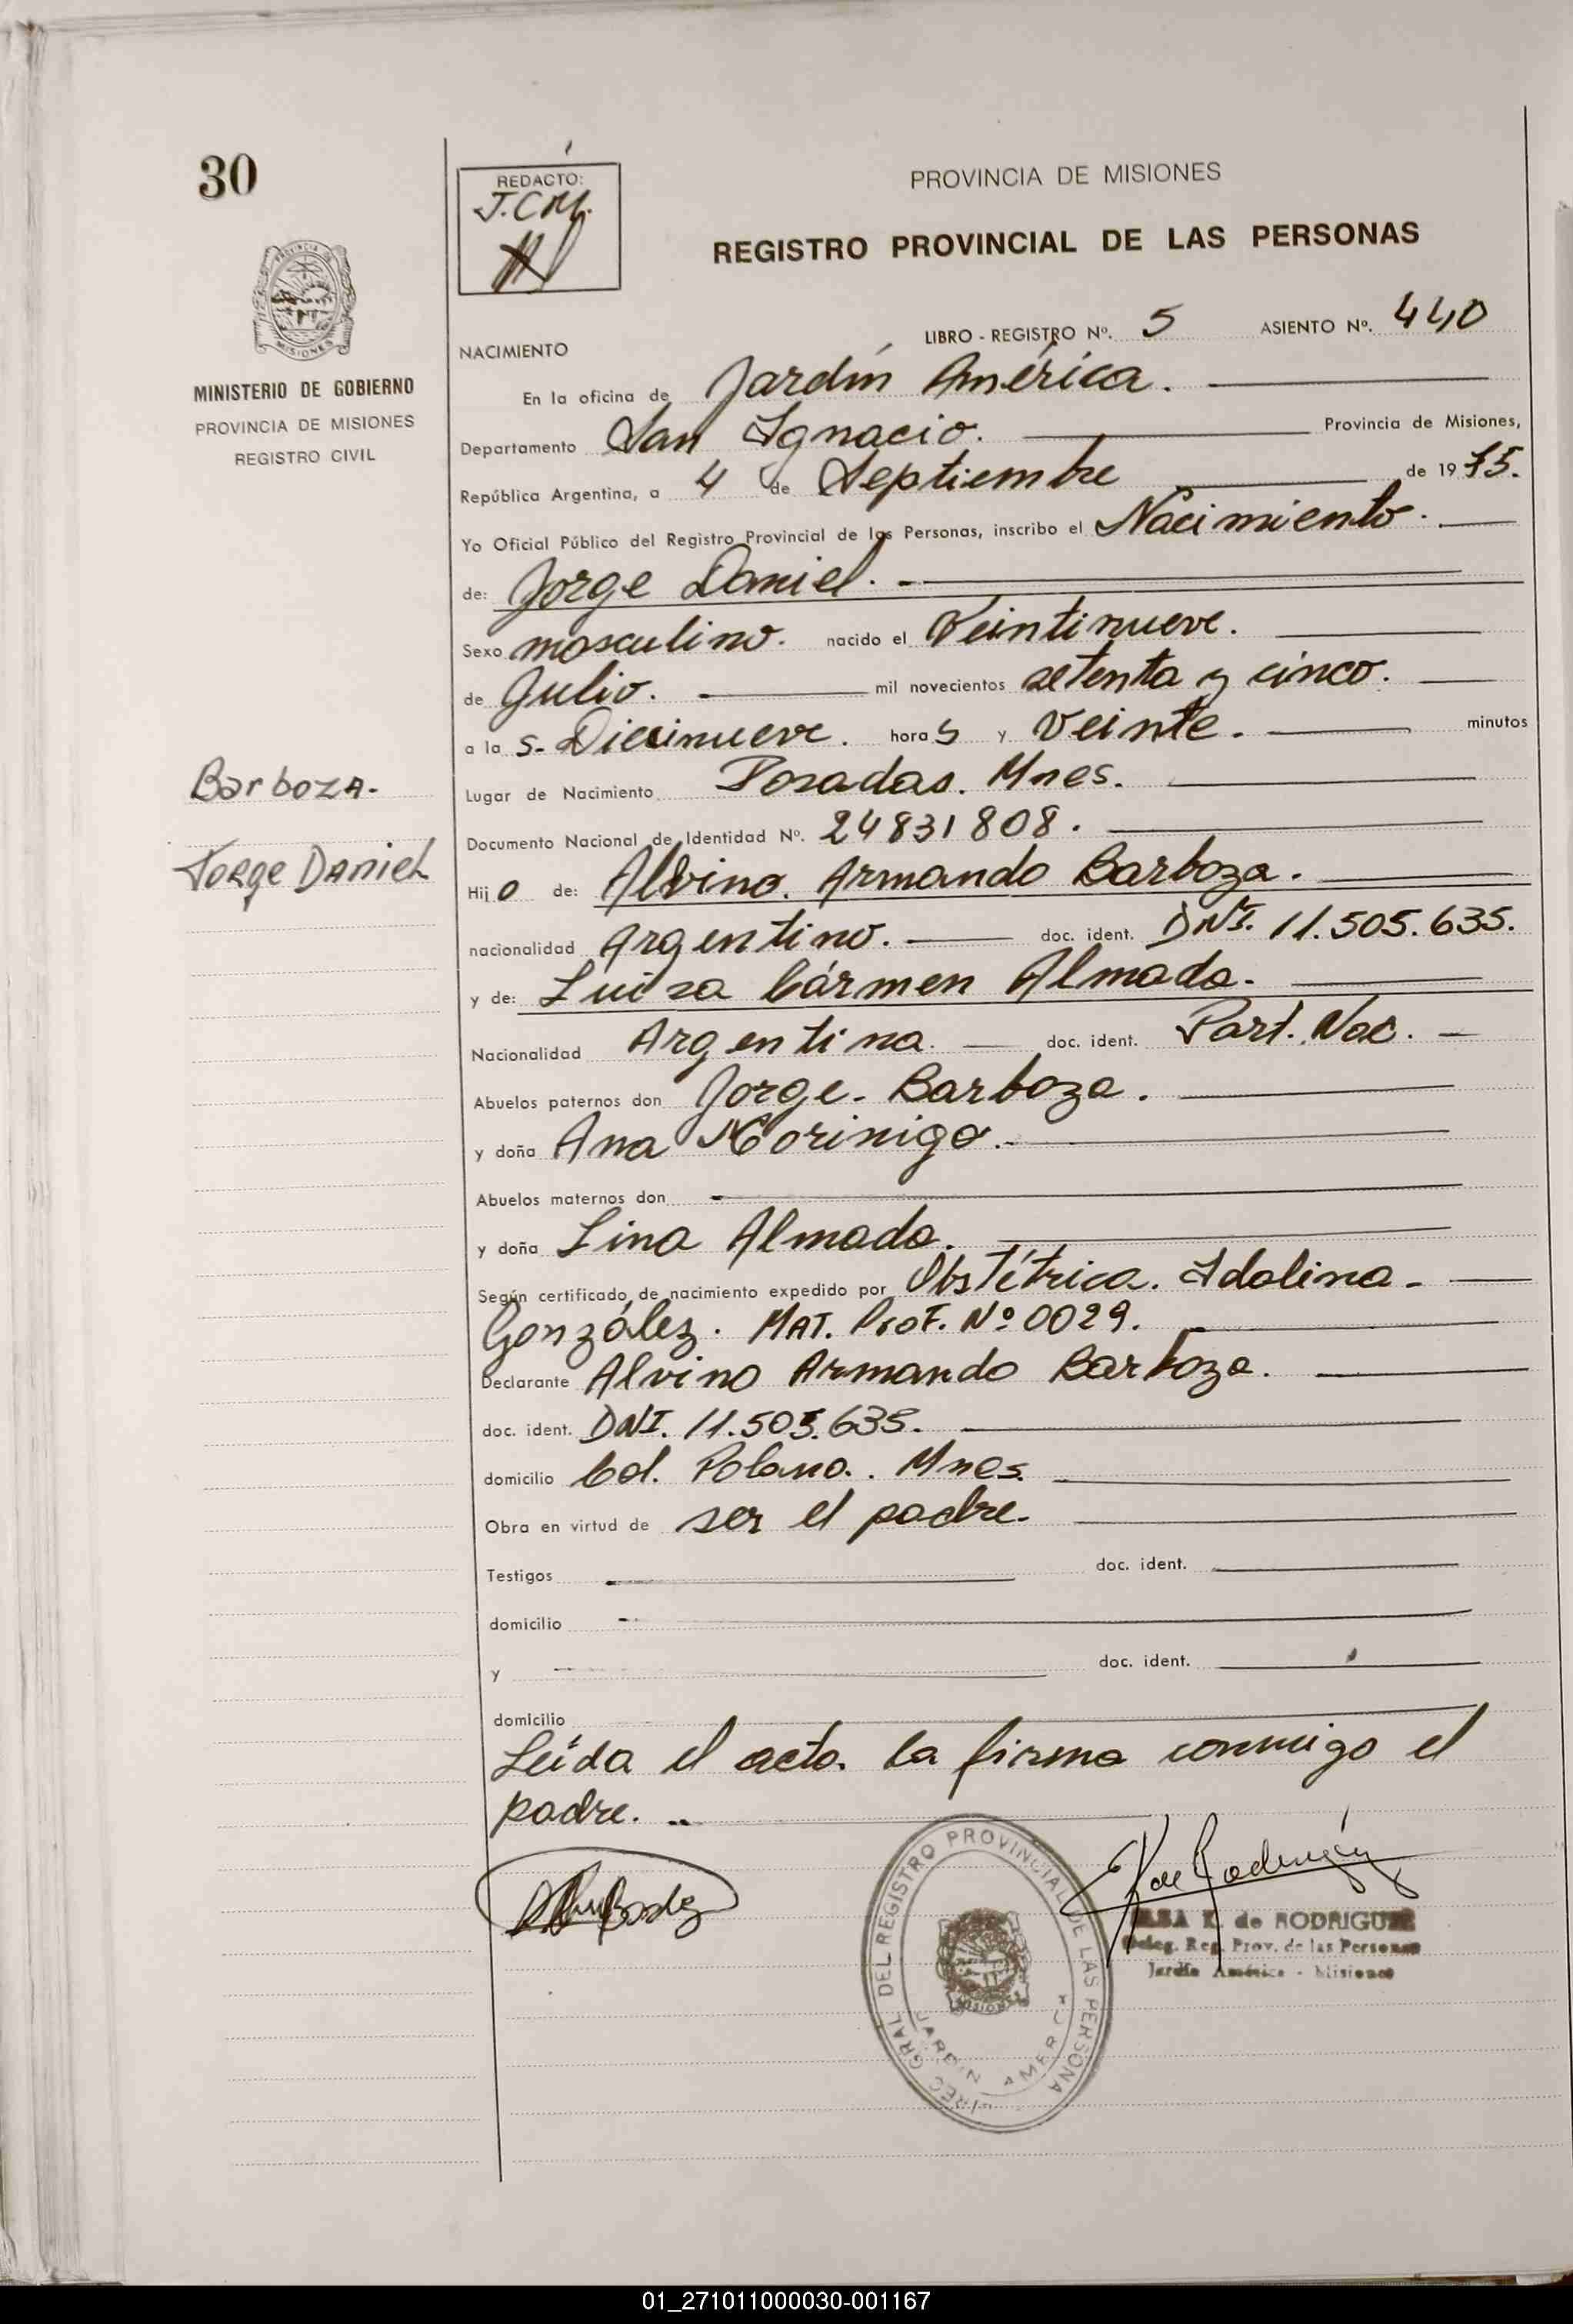 30
REDACTO:
J.C.M.
PROVINCIA DE MISIONES
REGISTRO PROVINCIAL DE LAS PERSONAS
MISIONES
MINISTERIO DE GOBIERNO
PROVINCIA DE MISIONES
REGISTRO CIVIL
LIBRO - REGISTRO Nº. 5 ASIENTO Nº. 440
NACIMIENTO
En la oficina de Jardín América.
Departamento San Ignacio. Provincia de Misiones,
República Argentina, a 4 de Septiembre de 1975.
Yo Oficial Público del Registro Provincial de las Personas, inscribo el Nacimiento.
de: Jorge Daniel.
Sexo masculino. nacido el Veintinueve.
de Julio. mil novecientos setenta y cinco.
a la s- Diecinueve. horas y veinte. minutos
Barboza.
Jorge Daniel
Lugar de Nacimiento Posadas. Mnes.
Documento Nacional de Identidad Nº. 24831808.
Hijo de: Alvino. Armando Barboza.
nacionalidad Argentino. doc. ident. DNI. 11.505.635.
y de: Luisa Cármen Almada.
Nacionalidad Argentina. doc. ident. Part. Nac.
Abuelos paternos don Jorge. Barboza.
y doña Ana Morinigo.
Abuelos maternos don
y doña Lina Almada.
Según certificado de nacimiento expedido por Obstétrica. Idalina.
González. MAT. Prof. Nº 0029.
Declarante Alvino Armando Barboza.
doc. ident. DNI. 11.505.635.
domicilio Col. Polana. Mnes.
Obra en virtud de ser el padre.
Testigos doc. ident.
domicilio
y doc. ident.
domicilio
Leída el acta. la firma conmigo el
padre.
K de Rodríguez
K. de RODRIGUEZ
Deleg. Reg. Prov. de las Personas
Jardín América - Misiones
GRAL DEL REGISTRO PROVINCIAL DE LAS PERSONA
MISIONES
JARDIN AMERICA
01_271011000030-001167